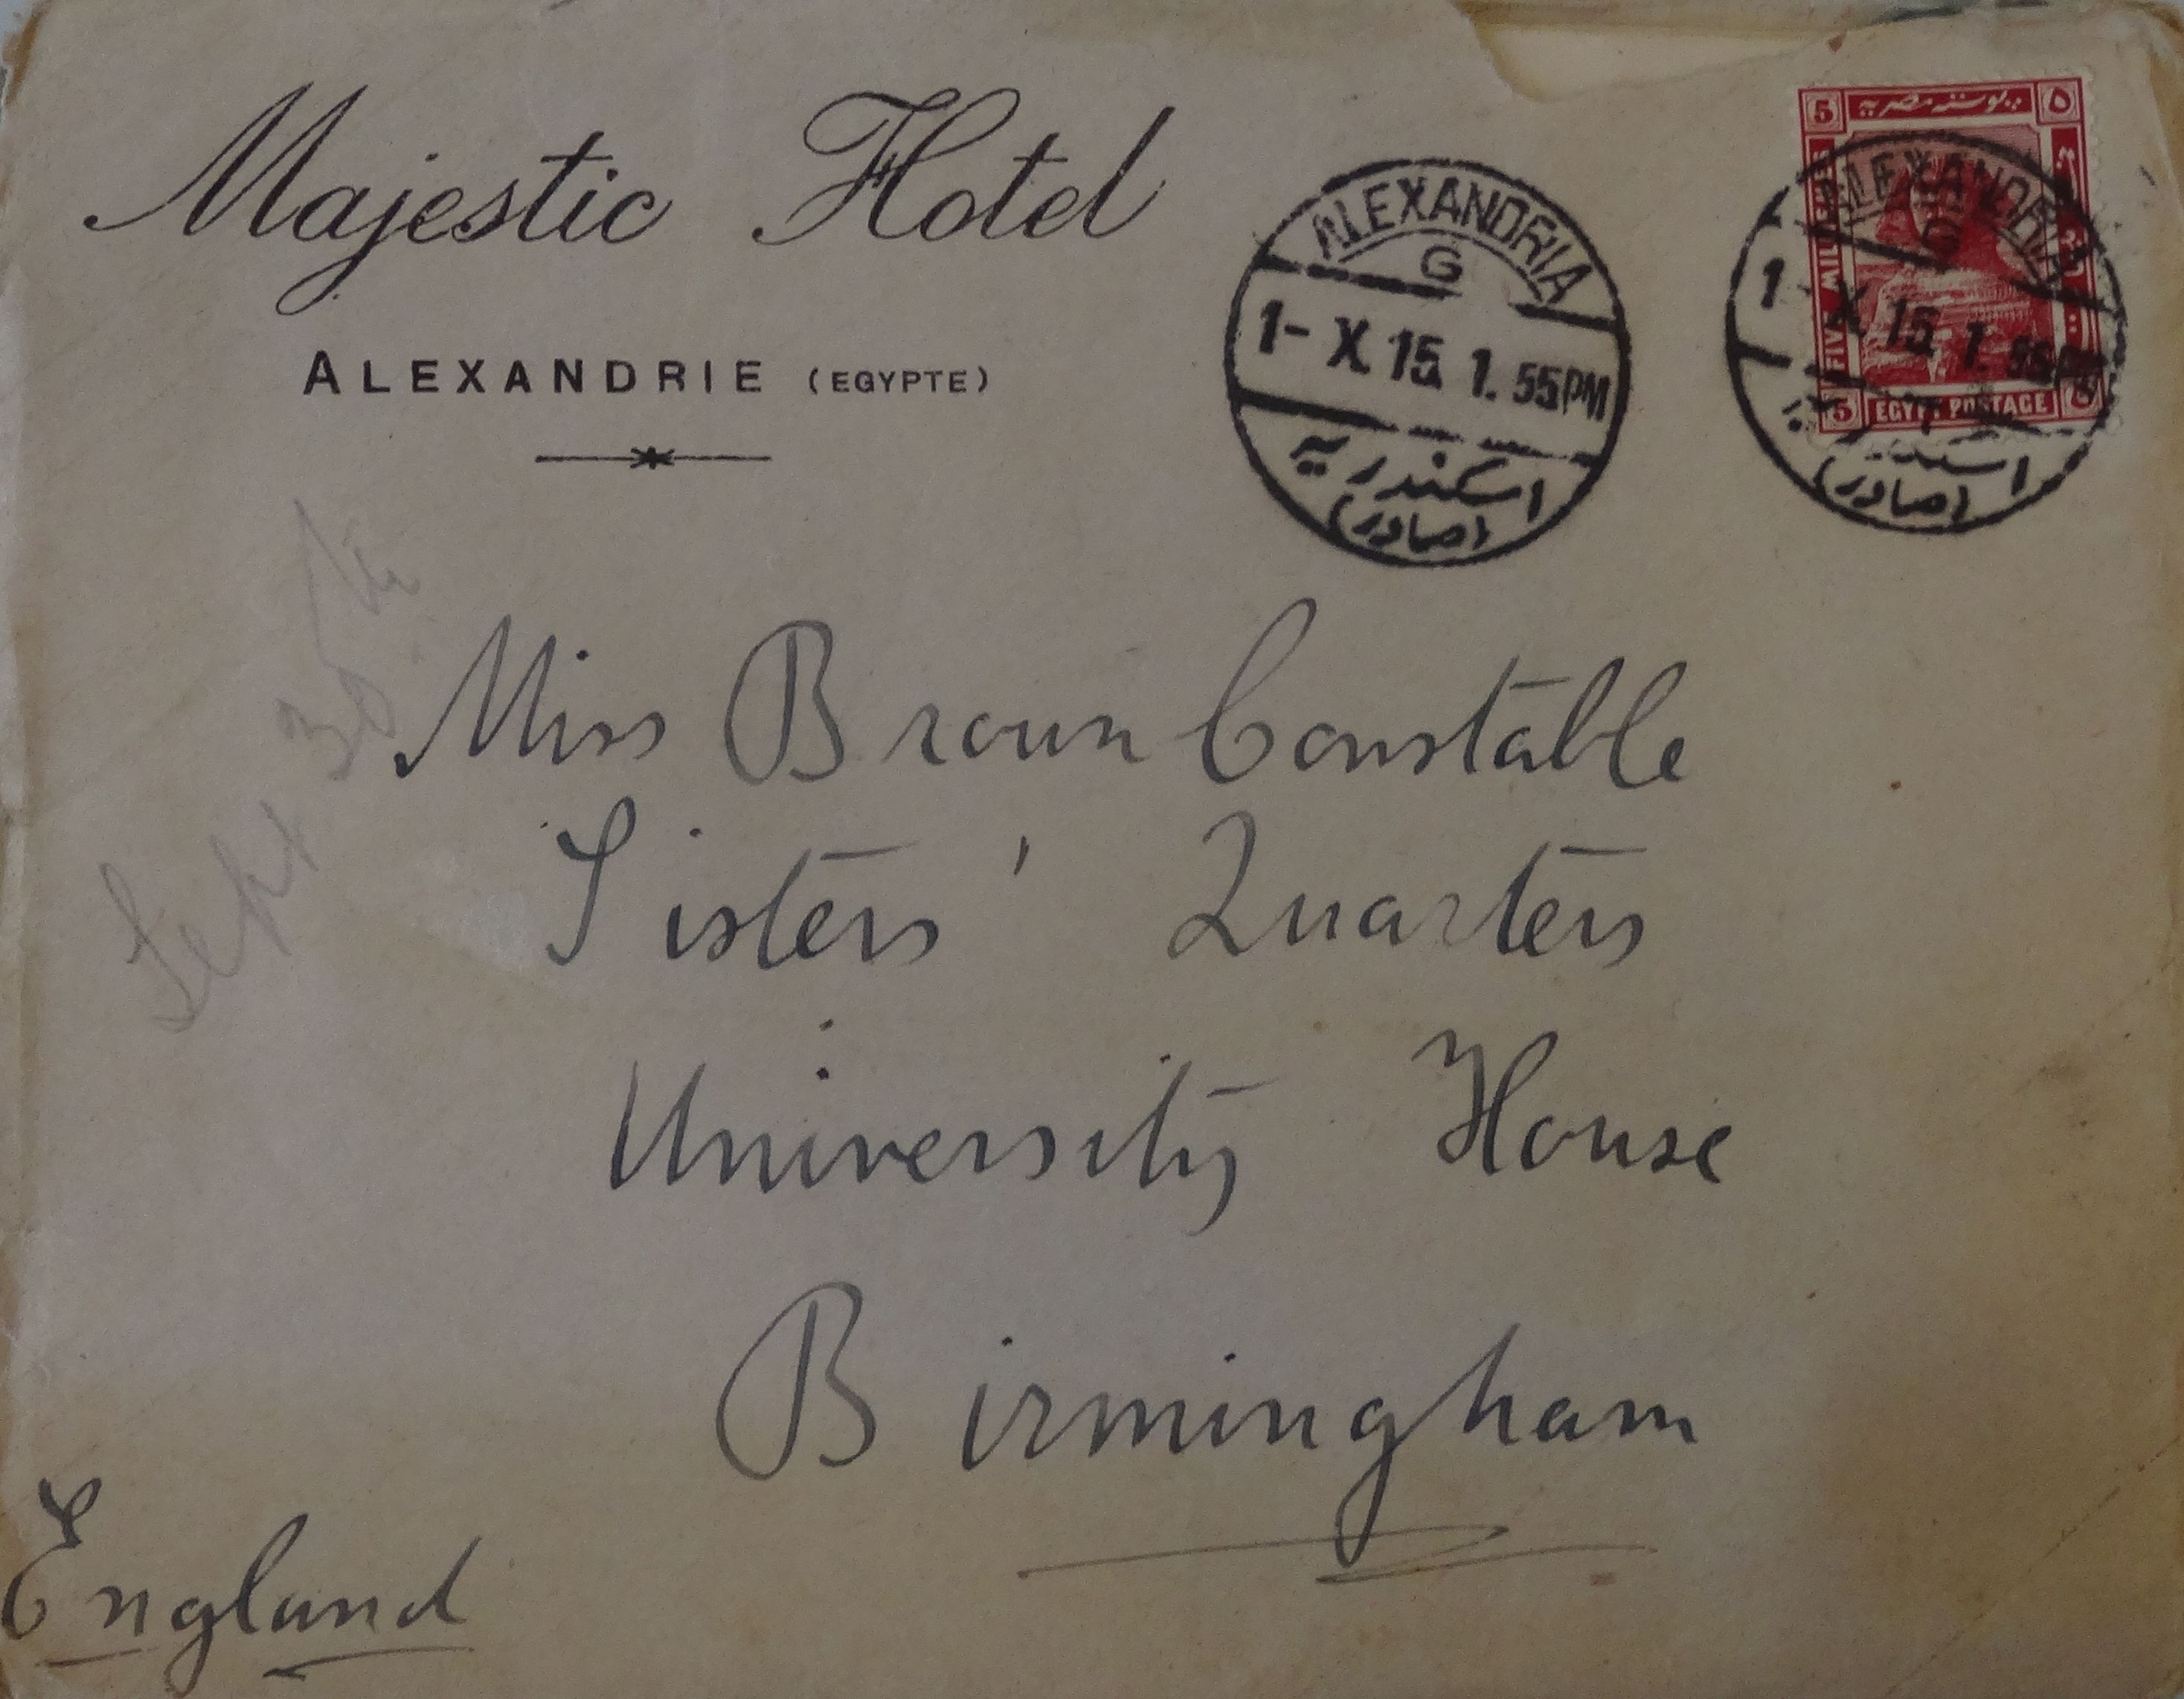 Majestic Hotel
ALEXANDRIE (EGYPTE)
ALEXANDRIA
G
1- X 15 1. 55PM
اسكندريه
(صادر)
5 بوستة مصرية ٥
ALEXANDRIA
G
FIVE MILLIEMES
1- X 15 1. 55PM
5 EGYPT POSTAGE
(صادر)
Sept 30th
Miss Brown Constable
Sisters' Quarters
University House
Birmingham
England